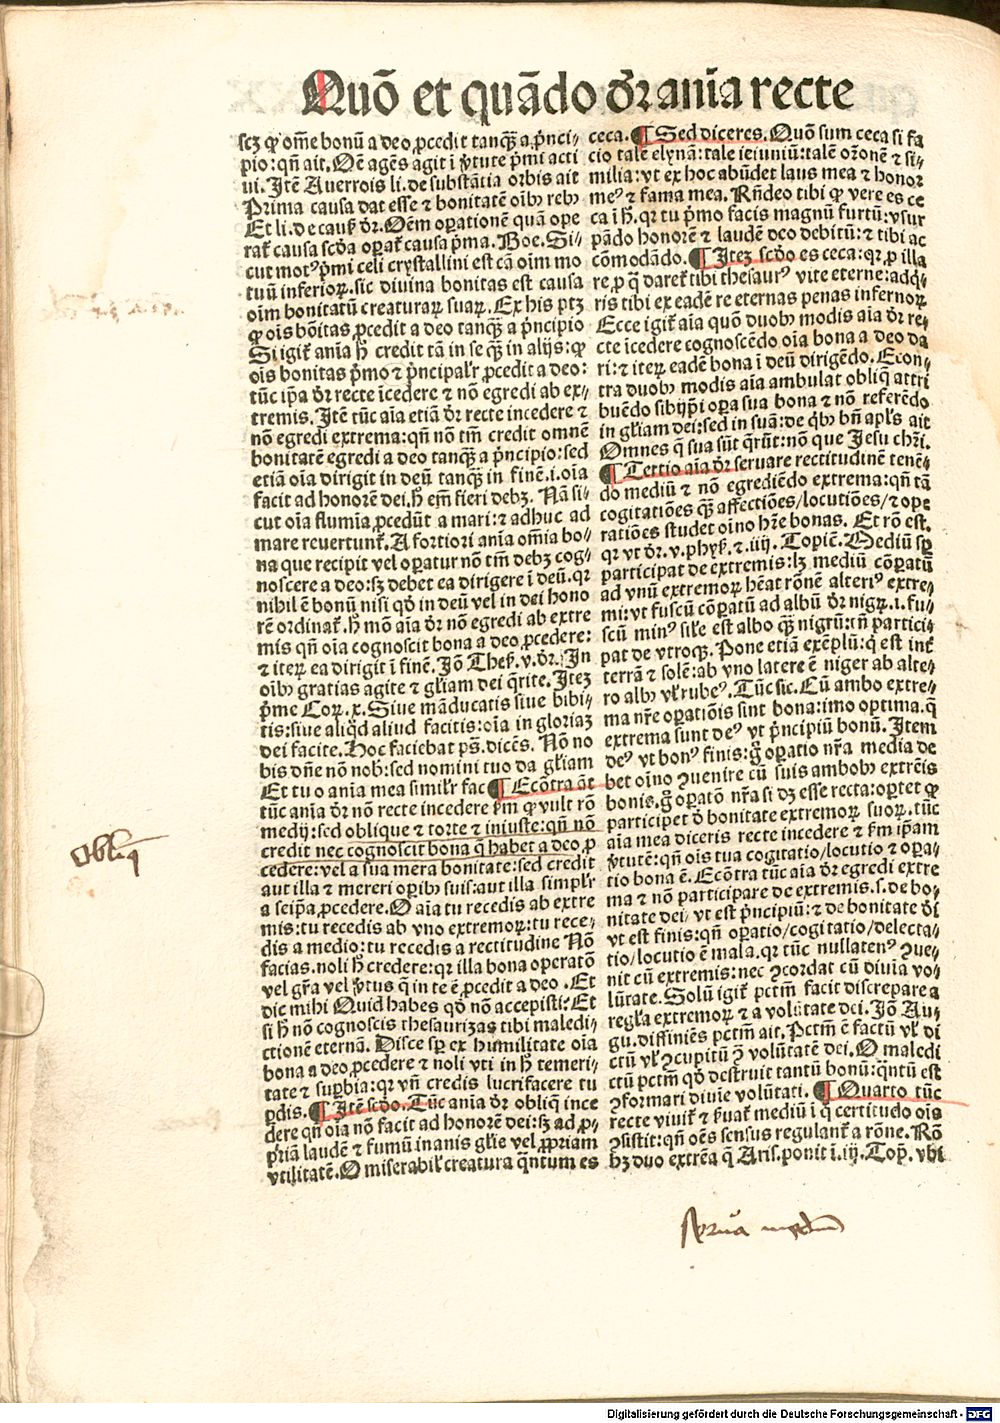 Quō et quādo dr̄ aīa recte
scz qꝫ om̄e bonū a deo ꝓcedit tanqꝫ̄ a p̄nci⸗
pio: qn̄ ait. Oē agēs agit ī v̓tute p̄mi acti
ui. Itē Auerrois li. de substātia orbis ait
Prima causa dat esse ⁊ bonitatē oībꝰ rebꝰ
Et li. de caus̄ dr̄. Oēm oꝑationē quā ope
rat̄ causa scd̓a oꝑat̄ causa p̄ma. Boe. Si⸗
cut motꝰ p̄mi celi crystallini est cā oīm mo
tuū inferioꝝ. sic diuina bonitas est causa
oīm bonitatū creaturaꝝ suaꝝ. Ex his ptꝫ
ꝙ oīs bōitas ꝓcedit a deo tanqꝫ̄ a p̄ncipio
Si igit̄ anīa h̄ credit tā in se qꝫ̄ in alijs: ꝙ
oīs bonitas p̄mo ⁊ p̄ncipalr̄ ꝓcedit a deo:
tūc ip̄a dr̄ recte īcedere ⁊ nō egredi ab ex⸗
tremis. Itē tūc aīa etiā dr̄ recte incedere ⁊
nō egredi extrema: qn̄ nō tm̄ credit omnē
bonitatē egredi a deo tanqꝫ̄ a p̄ncipio: sed
etiā oīa dirigit in deū tanqꝫ̄ in finē. i. oīa
facit ad honorē dei. h̄ em̄ fieri debꝫ. Nā si⸗
cut oīa flumīa ꝓcedūt a mari: ⁊ adhuc ad
mare reuertunt̄. A fortiori anīa om̄ia bo⸗
na que recipit vel oꝑatur nō tm̄ debꝫ cog⸗
noscere a deo: sꝫ debet ea dirigere ī deū. qr
nihil ē bonū nisi qd̓ in deū vel in dei hono
rē ordinat̄. h̄ mō aīa dr̄ nō egredi ab extre
mis qn̄ oīa cognoscit bona a deo ꝓcedere:
⁊ iteꝝ ea dirigit ī finē. Jō Thes̄. v. dr̄. In
oībꝰ gratias agite ⁊ gl̄iam dei q̄rite. Itez
p̄me Coꝝ. x. Siue māducatis siue bibi⸗
tis: siue aliqd̓ aliud facitis: oīa in gloriaꝫ
dei facite. Hoc faciebat ps̄. dicēs. Nō no
bis dn̄e nō nob̄: sed nomini tuo da gl̄iam
Et tu o anīa mea similr̄ fac ¶ Ecōtra āt
tūc anīa dr̄ nō recte incedere s̄m ꝙ vult rō
medij: sed oblique ⁊ torte ⁊ iniuste: qn̄ nō
credit nec cognoscit bona q̄ habet a deo ꝓ
cedere: vel a sua mera bonitate: sed credit
aut illa ⁊ mereri oꝑibꝰ suis: aut illa simplr̄
a seip̄a ꝓcedere. O aīa tu recedis ab extre
mis: tu recedis ab vno extremoꝝ: tu rece⸗
dis a medio: tu recedis a rectitudine Nō
facias. noli h̄ credere: qr illa bona operatō
vel gr̄a vel v̓tus q̄ in te ē ꝓcedit a deo. Et
dic mihi Quid habes qd̓ nō accepisti: Et
si h̄ nō cognoscis thesaurizas tibi maledi⸗
ctionē eternā. Disce sꝑ ex humilitate oīa
bona a deo ꝓcedere ⁊ noli vti in h̄ temeri⸗
tate ⁊ suꝑbia: qr vn̄ credis lucrifacere tu
ꝑdis. ¶ Itē scd̓o. Tūc anīa dr̄ obliq̄ ince
dere qn̄ oīa nō facit ad honorē dei: sꝫ ad ꝓ⸗
p̄riā laudē ⁊ fumū inanis gl̄ie vel ꝓpriam
vtilitatē. O miserabil̄ creatura q̄ntum es
ceca. ¶ Sed diceres. Quō sum ceca si fa
cio tale elynā: tale ieiuniū: talē or̄onē ⁊ si⸗
milia: vt ex hoc abūdet laus mea ⁊ honor
meꝰ ⁊ fama mea. Rn̄deo tibi ꝙ vere es ce
ca ī h̄. qr tu p̄mo facis magnū furtū: vsur
pādo honorē ⁊ laudē deo debitū: ⁊ tibi ac
cōmodādo. ¶ Itez scd̓o es ceca: qr ꝑ illa
re ꝑ q̄ daret̄ tibi thesaurꝰ vite eterne: adq̄⸗
ris tibi ex eadē re eternas penas infernoꝝ
Ecce igit̄ aīa quō duobꝰ modis aīa dr̄ re⸗
cte īcedere cognoscēdo oīa bona a deo da
ri: ⁊ iteꝝ eadē bona ī deū dirigēdo. Econ⸗
tra duobꝰ modis aīa ambulat obliq̄ attri
buēdo sibijp̄i oꝑa sua bona ⁊ nō referēdo
in gl̄iam dei: sed in suā: de q̄bꝰ bn̄ apl̄s ait
Omnes q̄ sua sūt q̄rūt: nō que Jesu chr̄i.
¶ Tertio aīa dr̄ seruare rectitudinē tenē⸗
do mediū ⁊ nō egrediēdo extrema: qn̄ tā
cogitatiōes qꝫ̄ affectiōes/locutiōes/⁊ ope
ratiōes studet oīno hr̄e bonas. Et rō est.
qr vt dr̄. v. phys̄. ⁊. iiij. Topic̄. Mediū sꝑ
participat de extremis: lꝫ mediū cōꝑatū
ad vnū extremoꝝ hēat rōnē alteriꝰ extre⸗
mi: vt fuscū cōꝑatū ad albū dr̄ nigꝝ. i. fu⸗
scū minꝰ sil̄e est albo qꝫ̄ nigrū: tn̄ partici⸗
pat de vtroqꝫ. Pone etiā exēplū: q̄ est int̄
terrā ⁊ solē: ab vno latere ē niger ab alte⸗
ro albꝰ vl̄ rubeꝰ. Tūc sic. Cū ambo extre⸗
ma nr̄e oꝑatiōis sint bona: imo optima. q̄
extrema sunt deꝰ vt p̄ncipiū bonū. Item
deꝰ vt bonꝰ finis: g̊ oꝑatio nr̄a media de
bet oīno ꝯuenire cū suis ambobꝰ extrēis
bonis. g̊ oꝑatō nr̄a si dꝫ esse recta: oꝑtet ꝙ
participet d̓ bonitate extremoꝝ suoꝝ. tūc
aīa mea diceris recte incedere ⁊ s̄m ip̄am
v̓tutē: qn̄ oīs tua cogitatio/locutio ⁊ oꝑa⸗
tio bona ē. Ecōtra tūc aīa dr̄ egredi extre
ma ⁊ nō participare de extremis. s. de bo⸗
nitate dei, vt est p̄ncipiū: ⁊ de bonitate d̓i
vt est finis: qn̄ oꝑatio/cogitatio/delecta⸗
tio/locutio ē mala. qr tūc nullatenꝰ ꝯue⸗
nit cū extremis: nec ꝯcordat cū diuīa vo⸗
lūtate. Solū igit̄ pctm̄ facit discrepare a
regl̄a extremoꝝ ⁊ a volūtate dei. Jō Au⸗
gu. diffiniēs pctm̄ ait. Pctm̄ ē factū vl̄ di
ctū vl̄ ꝯcupitū ꝯ volūtatē dei. O maledi
ctū pctm̄ qd̓ destruit tantū bonū: q̄ntū est
ꝯformari diuīe volūtati. ¶ Quarto tūc
recte viuit̄ ⁊ s̄uat̄ mediū ī q̄ certitudo oīs
ꝯsistit: qn̄ oēs sensus regulant̄ a rōne. Rō
hꝫ duo extrēa q̄ Aris. ponit ī. iij. Topꝫ. vbi
Obliq̄
Digitalisierung gefördert durch die Deutsche Forschungsgemeinschaft - DFG